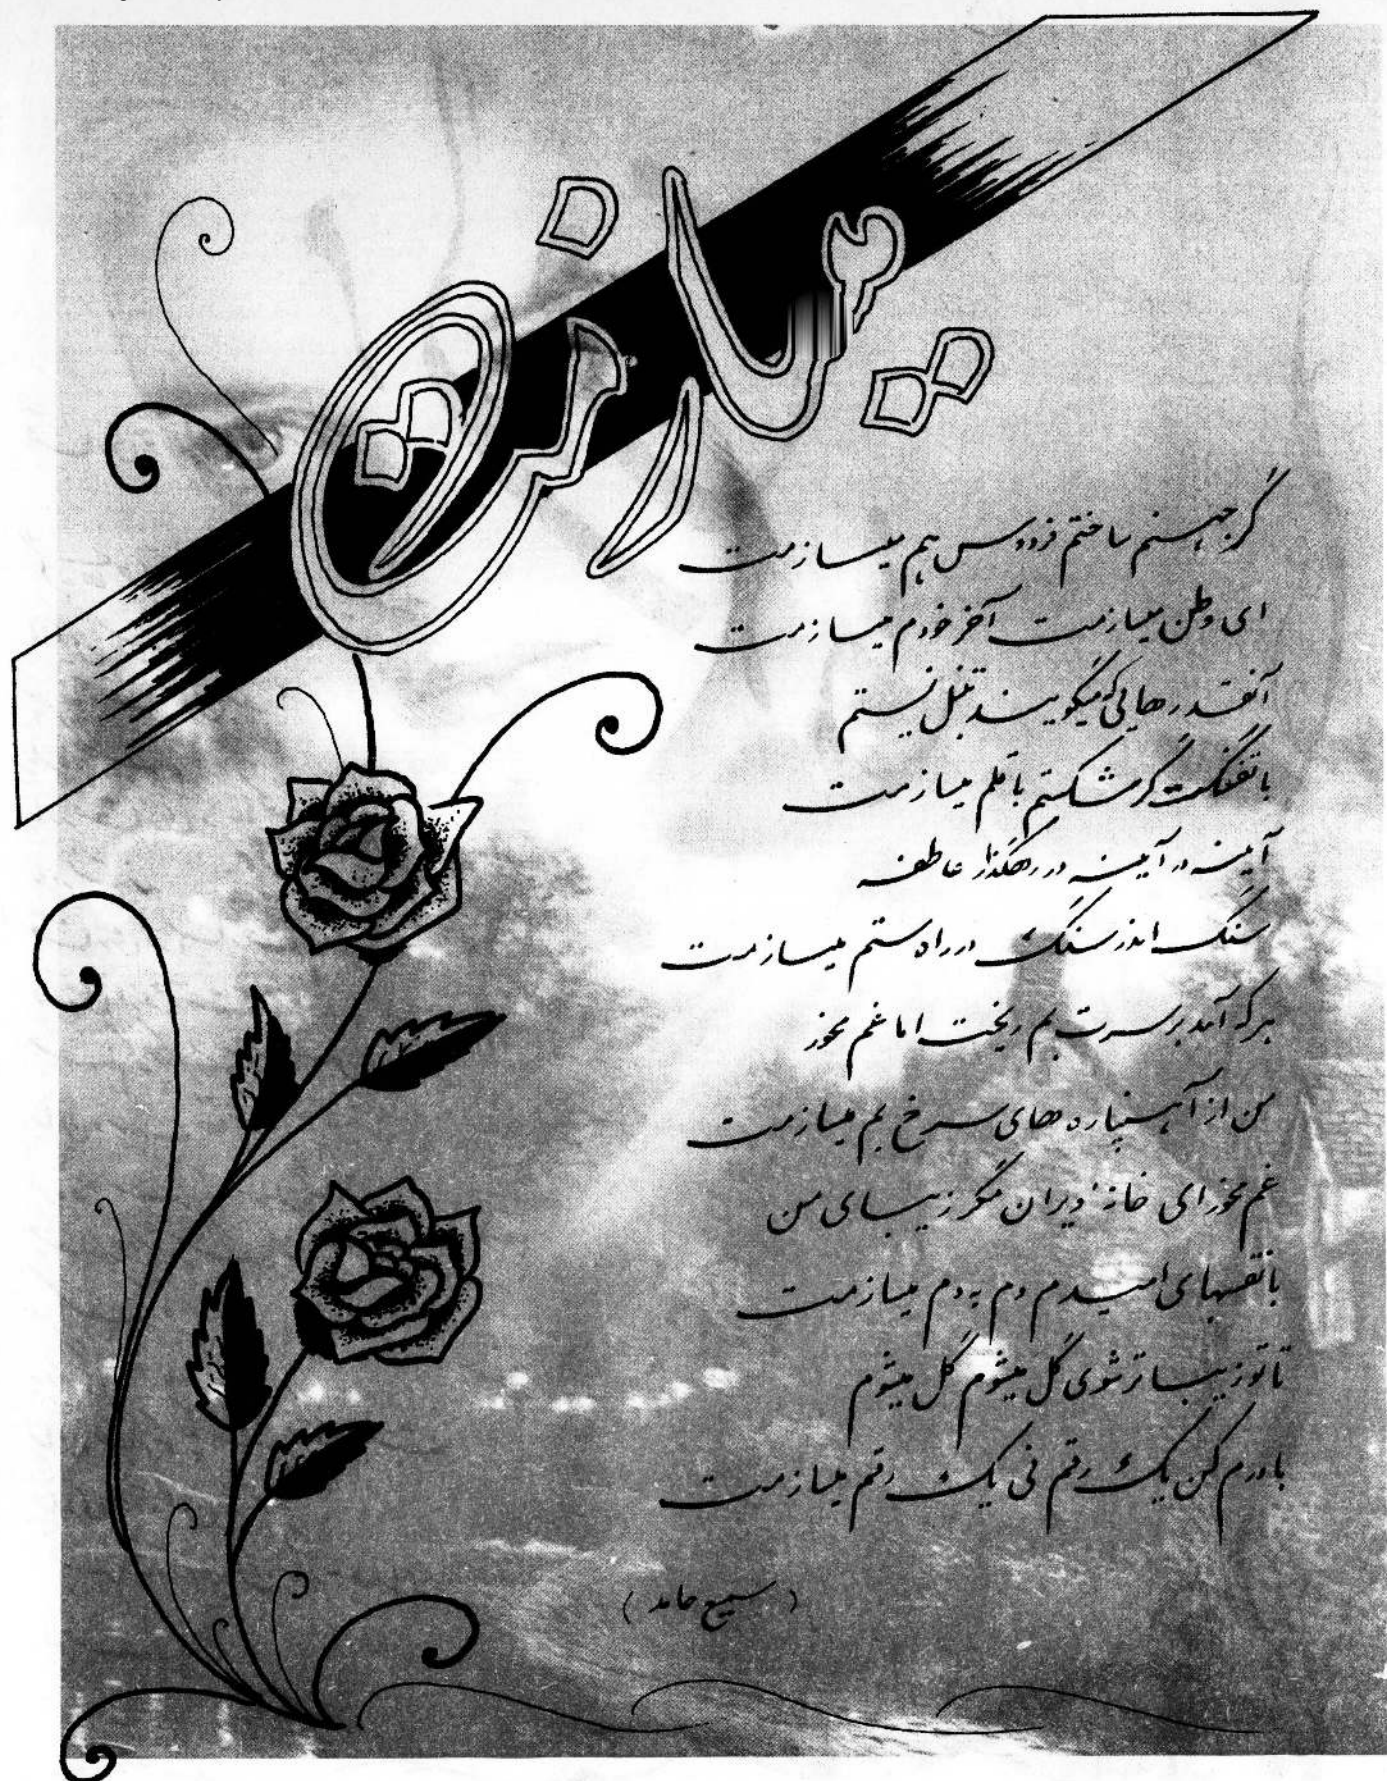 میسازمت
گر جهنم ساختم فردوس هم میسازمت
ای وطن میسازمت آخر خودم میسازمت
آنقدرهایی که میگویند تنبل نیستم
با تفنگت گر شکستم با قلم میسازمت
آیینه در آیینه در رهگذار عاطفه
سنگ اندر سنگ در راه ستم میسازمت
هر که آمد بر سرت بم ریخت اما غم مخور
من از آهنپاره های سرخ بم میسازمت
غم مخور ای خانهٔ ویران مگر زیبای من
با نفسهای امیدم دم به دم میسازمت
تا تو زیباتر شوی گل میشوم گل میشوم
باورم کن یک رقم نی یک رقم میسازمت
( سمیع حامد )